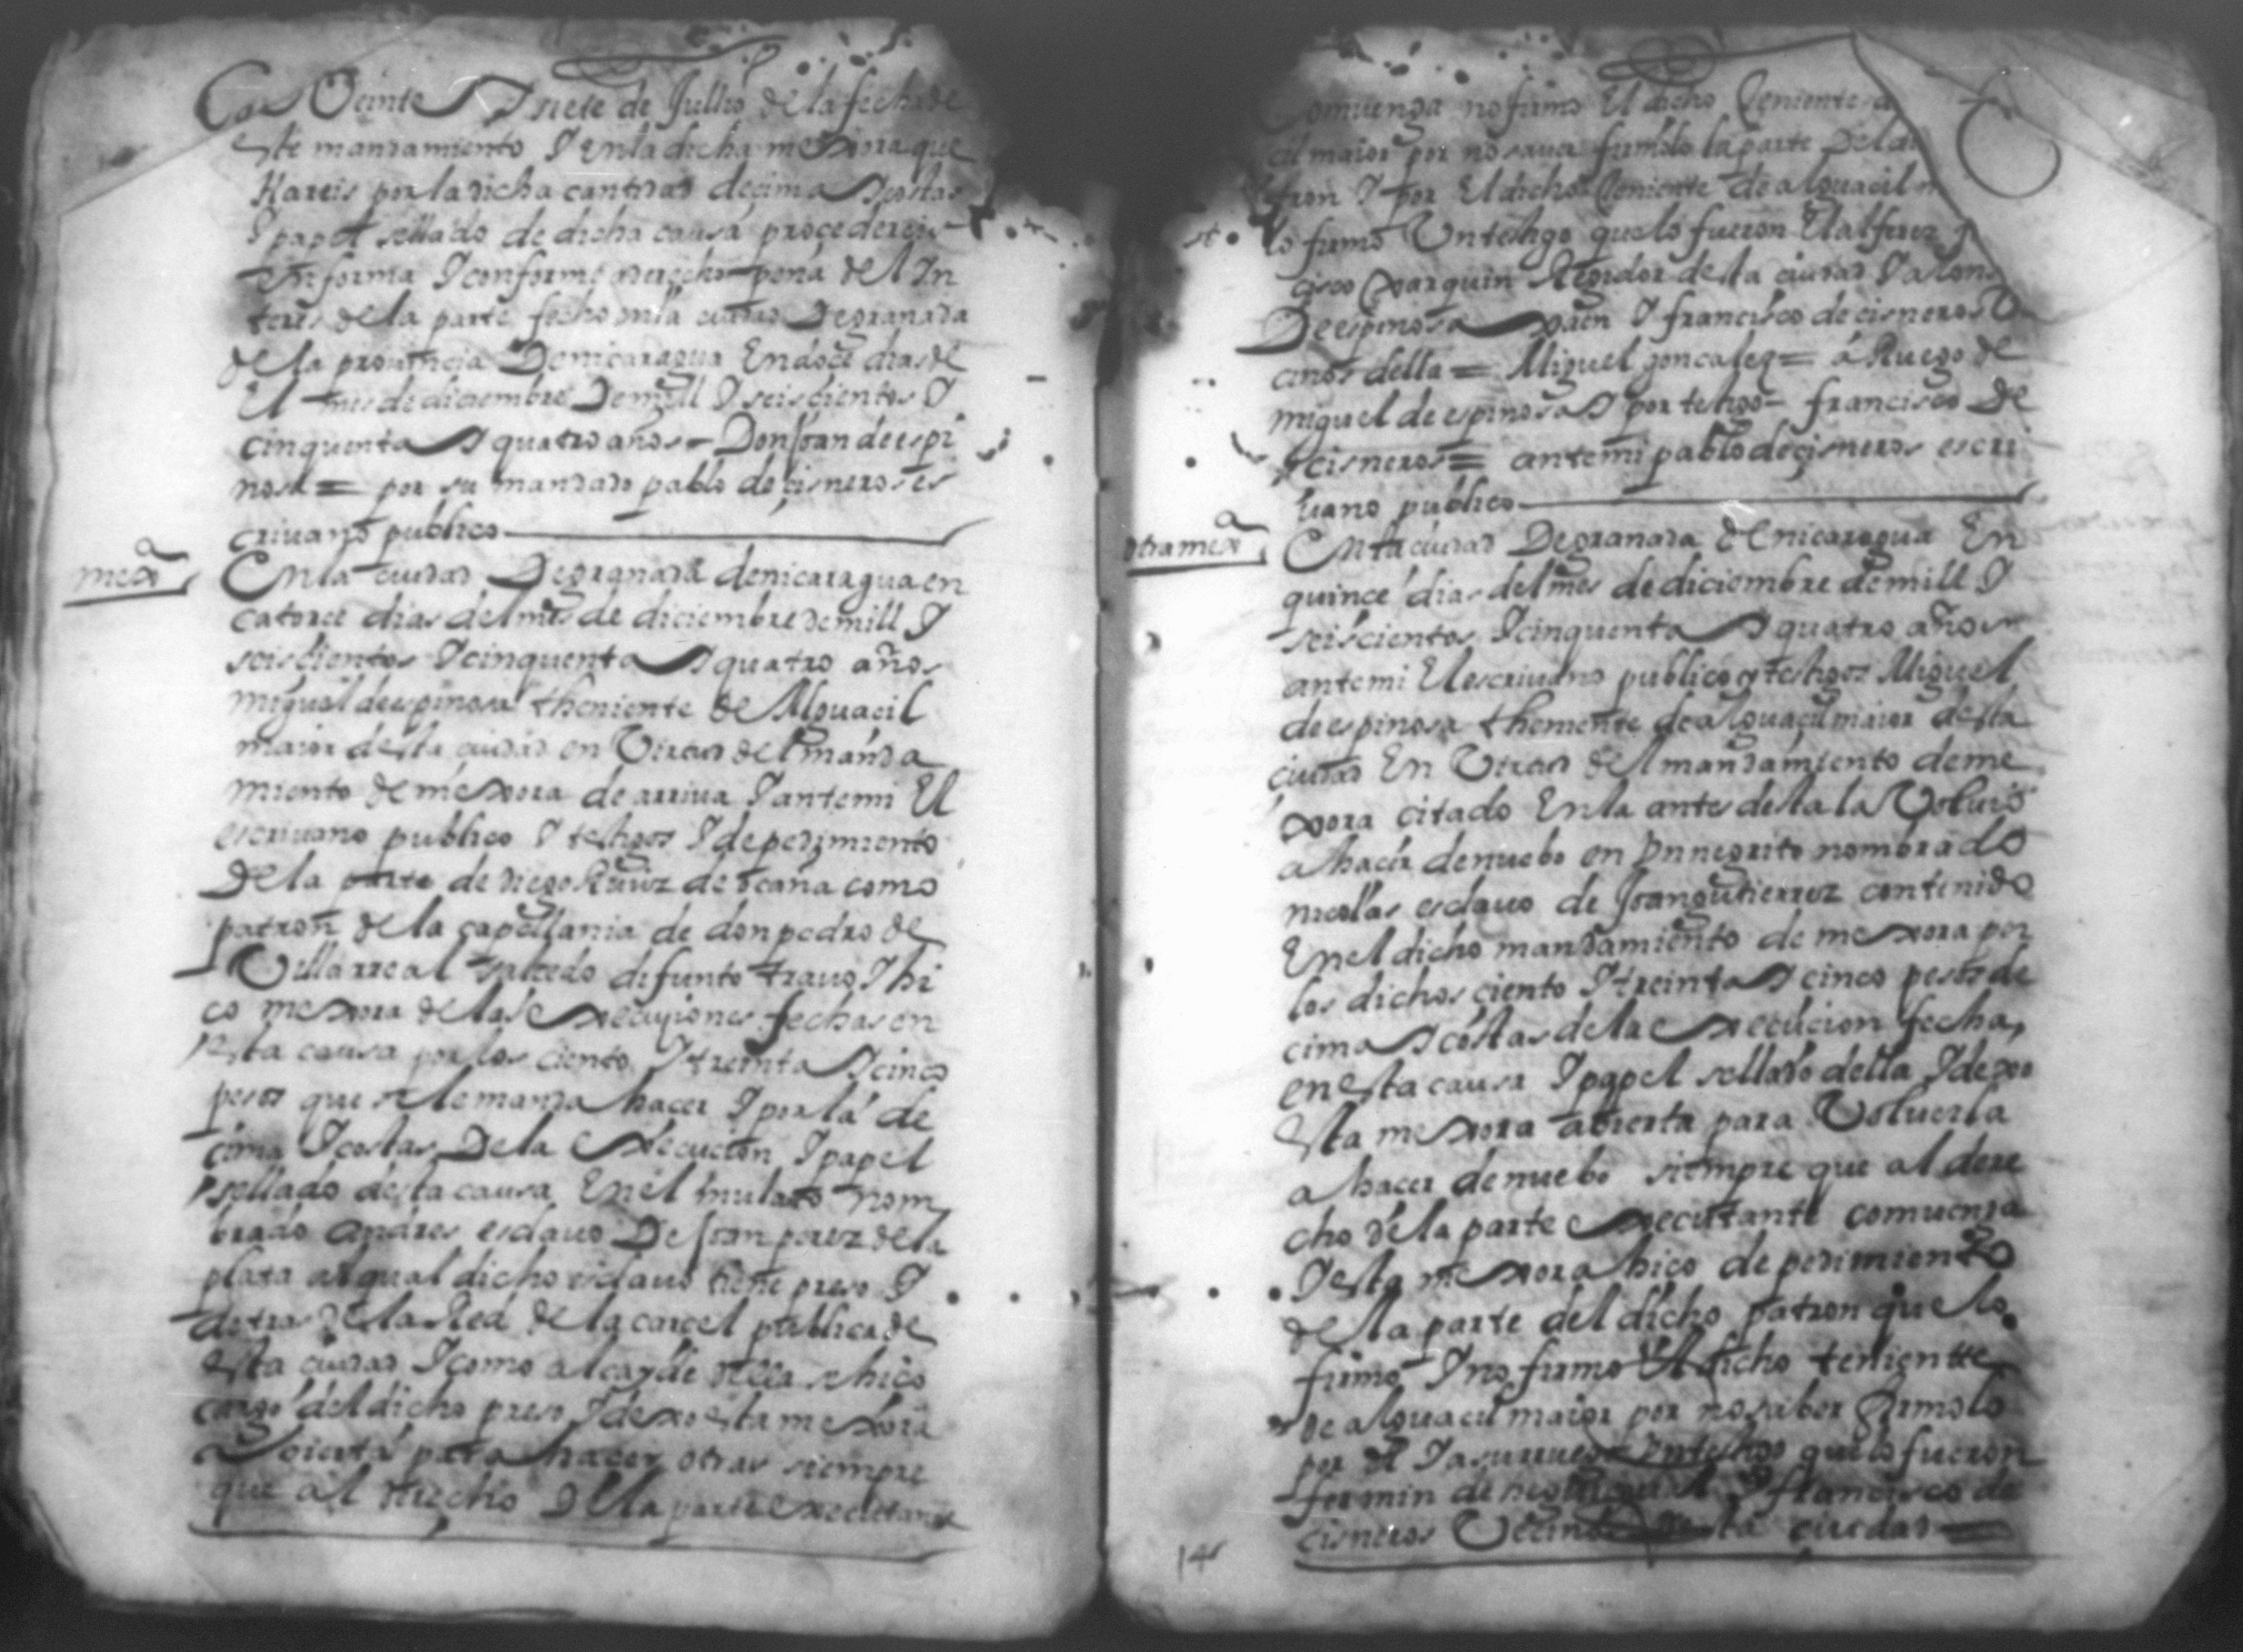 Veinte Y siete de Jullio de la fecha de
este mandamiento Y en la dicha mexora que
Hareis por la dicha cantidad decima Y costas
Y papel sellado de dicha causa procedereis
en forma Y conforme a derecho pena del In
teres de la parte fecho en la ciudad De granada
de la prouincia De nicaragua En doce dias de
El mes de diciembre De mill Y seiscientos Y
cinquenta Y quatro años = Don Joan de espi
nosa = por su mandado pablo de cisneros es
criuano publico
mexª
En la ciudad De granada de nicaragua en
catorce dias del mes de diciembre de mill Y
seiscientos Y cinquenta Y quatro años
miguel de espinosa theniente de Alguacil
maior desta ciudad en Virtud del manda
miento de mexora de arriua Y ante mi El
escriuano publico Y testigos Y de pedimiento
De la parte de diego Ruiz de ocaña como
patron de la capellania de don pedro de
Villarreal salcedo difunto trauo Y hi
ço mexora de las Execuçiones fechas en
esta causa por los ciento Y treinta Y cinco
pesos que se le manda hacer Y por la de
cima Y costas De la Execucion Y papel
sellado desta causa En el mulato nom
brado andres esclauo De Joan perez de la
plata al qual dicho esclauo tiene preso Y
detras de la Red de la carcel publica de
esta ciudad Y como alcayde della se hiço
cargo del dicho preso Y dexo esta mexora
abierta para hacer otras siempre
que al derecho De la parte executante
comuenga no firmo El dicho Teniente de
cil maior por no saue firmolo la parte Del
tron Y por El dicho Teniente de alguacil
lo firmo Vn testigo que lo fueron El alferez
cisco marquin Regidor desta ciudad Y alon
De espinosa Y francisco de cisneros
cinos della = Miguel gonçalez = á Ruego de
miguel de espinosa Y por testigo = francisco De
cisneros = ante mi pablo de çisneros escri
uano publico
otra mexª
En la ciudad De granada de nicaragua En
quince dias del mes de diciembre de mill Y
seiscientos Y cinquenta Y quatro años
ante mi El escriuano publico y testigos Miguel
de espinosa theniente de alguaçil maior desta
ciudad En Virtud del mandamiento de me
xora citado En la antes desta la Voluio
a hacer de nuebo en Vn negrito nombrado
nicolas esclauo de Joan gutierrez contenido
En el dicho mandamiento de mexora por
los dichos ciento Y treinta Y cinco pesos de
cima Y costas de la Execucion fecha
en esta causa Y papel sellado della Y dexo
esta mexora abierta para Voluerla
a hacer de nuebo siempre que al dere
cho de la parte executante comuenga
Y esta mexora hiço de pedimiento
de la parte del dicho patron que lo
firmo Y no firmo El dicho teniente
de alguacil maior por no saber firmolo
por el Y a su ruego Vn testigo que lo fueron
fermin de Y francisco de
cisneros Vecinos desta ciudad =
14